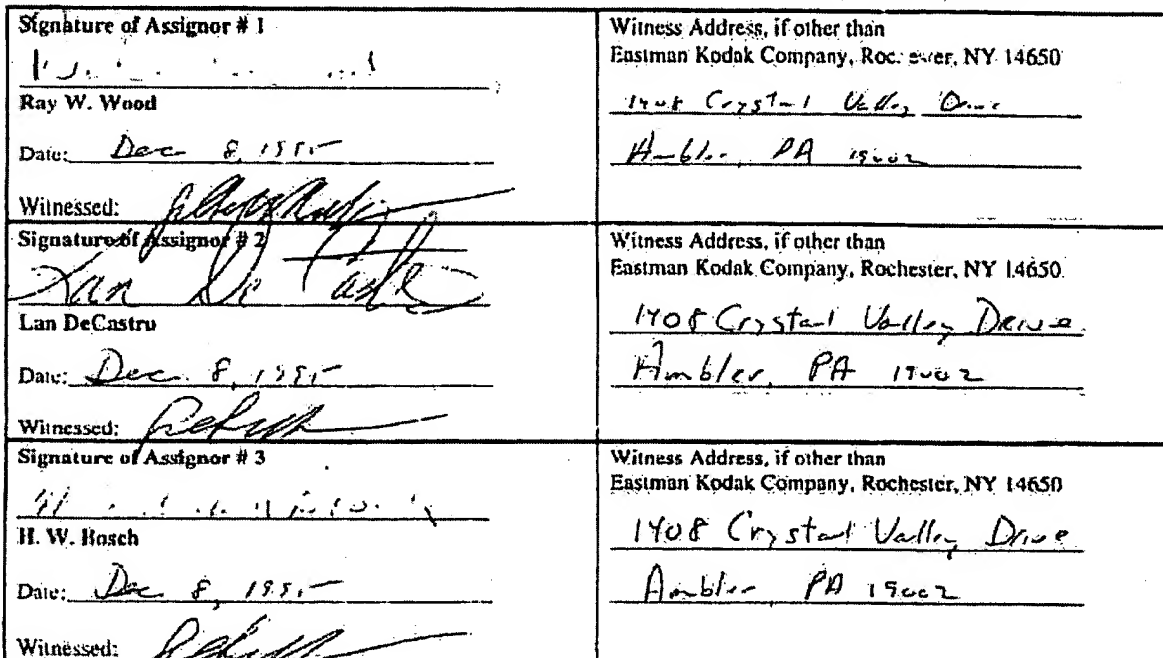 Signature of Assignor # 1
Ray W. Wood
Date: Dec 8, 1995
Witnessed:
Witness Address, if other than
Eastman Kodak Company, Rochester, NY 14650
1408 Crystal Valley Drive
Ambler, PA 19002
Signature of Assignor # 2
Lan De Castro
Lan DeCastro
Date: Dec. 8, 1995
Witnessed:
Witness Address, if other than
Eastman Kodak Company, Rochester, NY 14650
1408 Crystal Valley Drive
Ambler, PA 19002
Signature of Assignor # 3
H. W. Bosch
Date: Dec 8, 1995
Witnessed:
Witness Address, if other than
Eastman Kodak Company, Rochester, NY 14650
1408 Crystal Valley Drive
Ambler PA 19002